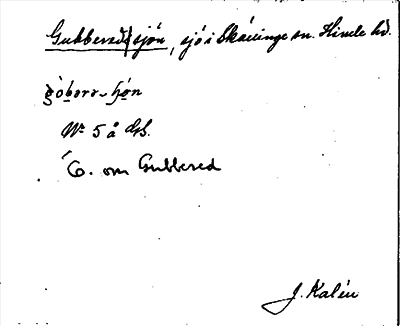 Gubbered|sjön, sjö i Skällinge sn. Himle hd.
gòborr-ʃǫ́n
Nr 5 å GS.
G. om Gubbered
J. Kalén